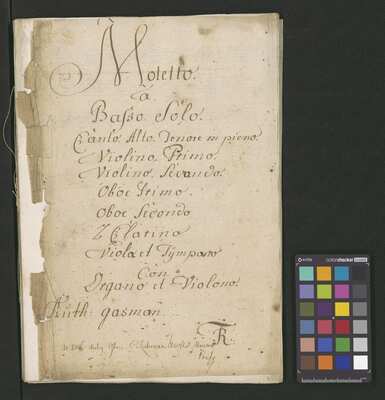 Motetto
à
Basso Solo.
Canto Alto Tenore in pieno
Violino Primo.
Violino Secondo
Oboe Primo.
Oboe Secondo
2 Clarini
Viola et Tympano
Con
Organo et Violono
Auth: gasman